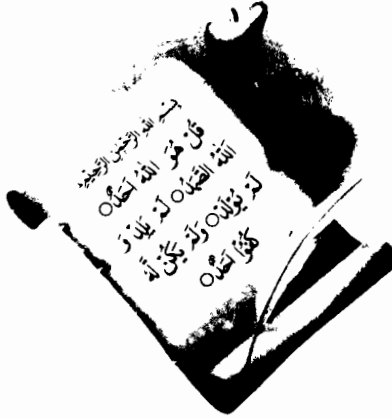 بِسْمِ اللهِ الرَّحْمٰنِ الرَّحِيْمِ
قُلْ هُوَ اللهُ اَحَدٌ ○
اَللهُ الصَّمَدُ ○ لَمْ يَلِدْ وَ
لَمْ يُوْلَدْ ○ وَلَمْ يَكُنْ لَّهٗ
كُفُوًا اَحَدٌ ○